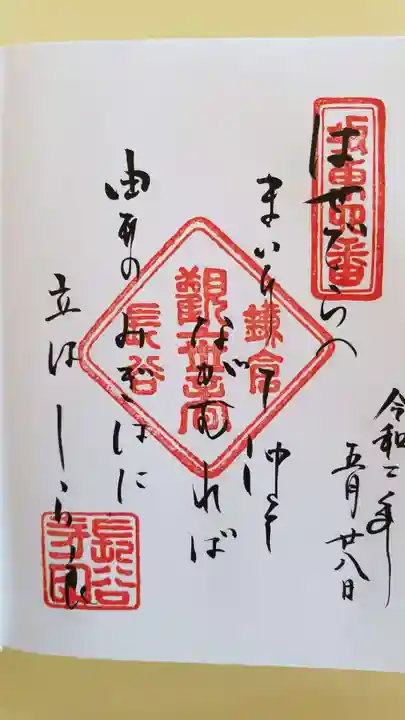 坂東四番
はせでらへ
まいりて沖を
ながむれば
由井のみぎはに
立はしら浪
令和二年
五月廿八日
鎌倉
觀世音
長谷
長谷
寺印